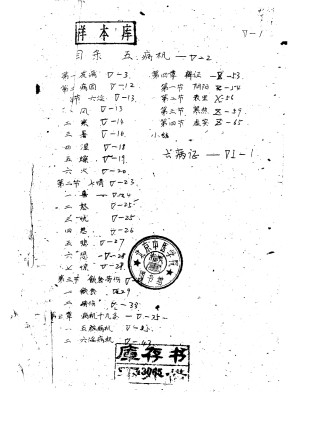 V-1
样本库
目录 五.病机 — V-2
第一 发病 V-3
第二 病因 V-12
节 六淫 V-13
一 风 V-13
二 寒 V-14
三 暑 V-16
四 湿 V-18
五 燥 V-19
六 火 V-20
第二节 七情 V-23
一 喜 V-24
二 怒 V-25
三 忧 V-25
四 思 V-26
五 悲 V-27
六 恐 V-28
七 惊 V-28
第三节 饮食劳伤
一 饮食
二 劳伤
第三章 病机十九条 — V-35
一 五脏病机
二 六淫病机 V-43
第四章 辨证 — V-53
第一节 阴阳 V-54
第二节 表里 V-56
第三节 寒热 V-59
第四节 虚实 V-65
小结
六病证 — VI-1
中医学院
图书馆
库存书